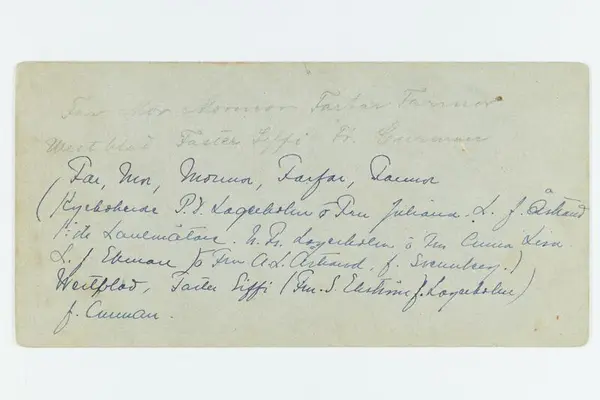 Far Mor Mormor Farfar Farmor
Westblad Faster Siffi Fr. Curman
Far, Mor, Mormor, Farfar, Farmor
(Kyrkoherde P. V. Lagerholm o Fru Juliana. L. f. Åstrand
Lantmätare. N. Fr. Lagerholm o Fru Anna Lisa
L. f Ekman fru A. L. Åstrand, f. Svennberg.)
Westblad, Faster Siffi (Fru. S. Ekström f. Lagerholm)
f. Curman.